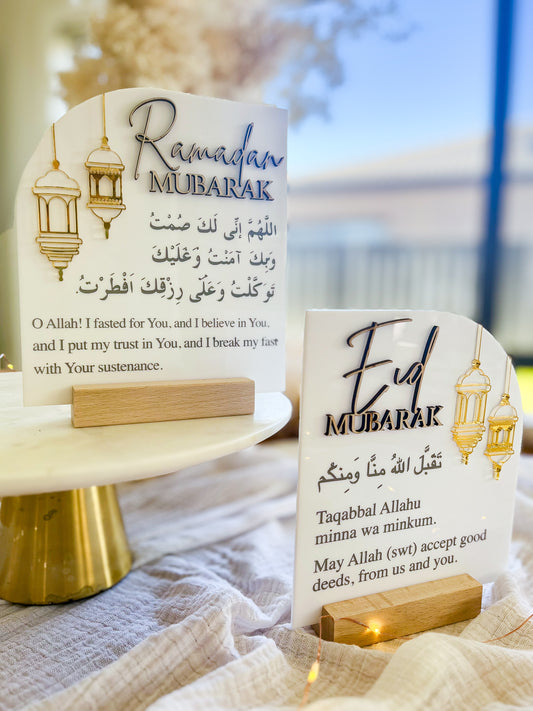 Ramadan
MUBARAK
اللَّهُمَّ إِنِّى لَكَ صُمْتُ
وَبِكَ آمَنْتُ وَعَلَيْكَ
تَوَكَّلْتُ وَعَلَى رِزْقِكَ اَفْطَرْتُ.
O Allah! I fasted for You, and I believe in You,
and I put my trust in You, and I break my fast
with Your sustenance.
Eid
MUBARAK
تَقَبَّلَ اللهُ مِنَّا وَمِنكُم
Taqabbal Allahu
minna wa minkum.
May Allah (swt) accept good
deeds, from us and you.